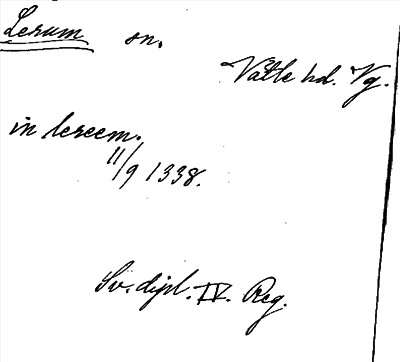 Lerum sn.
Vättle hd. Vg.
in lereem.
11/9 1338.
Sv. dipl. IV. Reg.